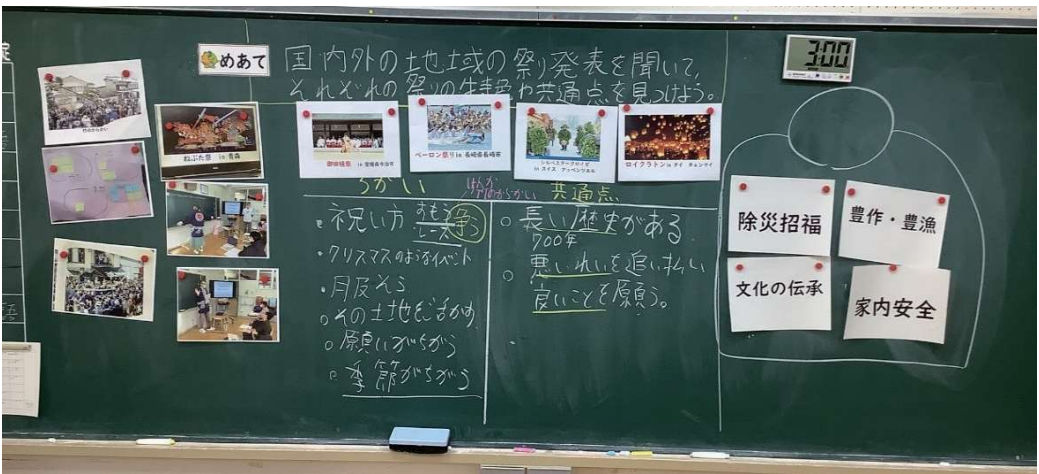 めあて
国内外の地域の祭り発表を聞いて、
それぞれの祭りの特ちょうや共通点を見つけよう。
竹のからかい
ねぶた祭 in 青森
御田植祭 in 愛媛県今治市
ペーロン祭り in 長崎県長崎市
シルベスタークロイゼ
in スイス アッペンツェル
ロイクラトン in タイ チェンマイ
ちがい
竹のからかい
共通点
祝い方 おもう
レース
争う
・クリスマスのようなイベント
・月及そう
○その土地を活かす
○願いがちがう
季節がちがう
○長い歴史がある
700年
○悪いれいを追い払い
良いことを願う。
3:00
除災招福
豊作・豊漁
文化の伝承
家内安全